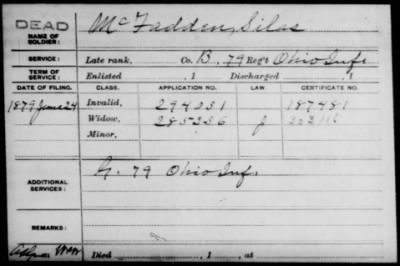 DEAD
NAME OF SOLDIER: McFadden, Silas
SERVICE: Late rank, Co. B, 79 Reg't Ohio Inf.
TERM OF SERVICE: Enlisted , 1 Discharged , 1
DATE OF FILING. CLASS. APPLICATION NO. LAW. CERTIFICATE NO.
1879 June 24 Invalid, 294031 187481
Widow, 285326
Minor,
ADDITIONAL SERVICES: G. 79 Ohio Inf.
REMARKS:
Died , 1 , at